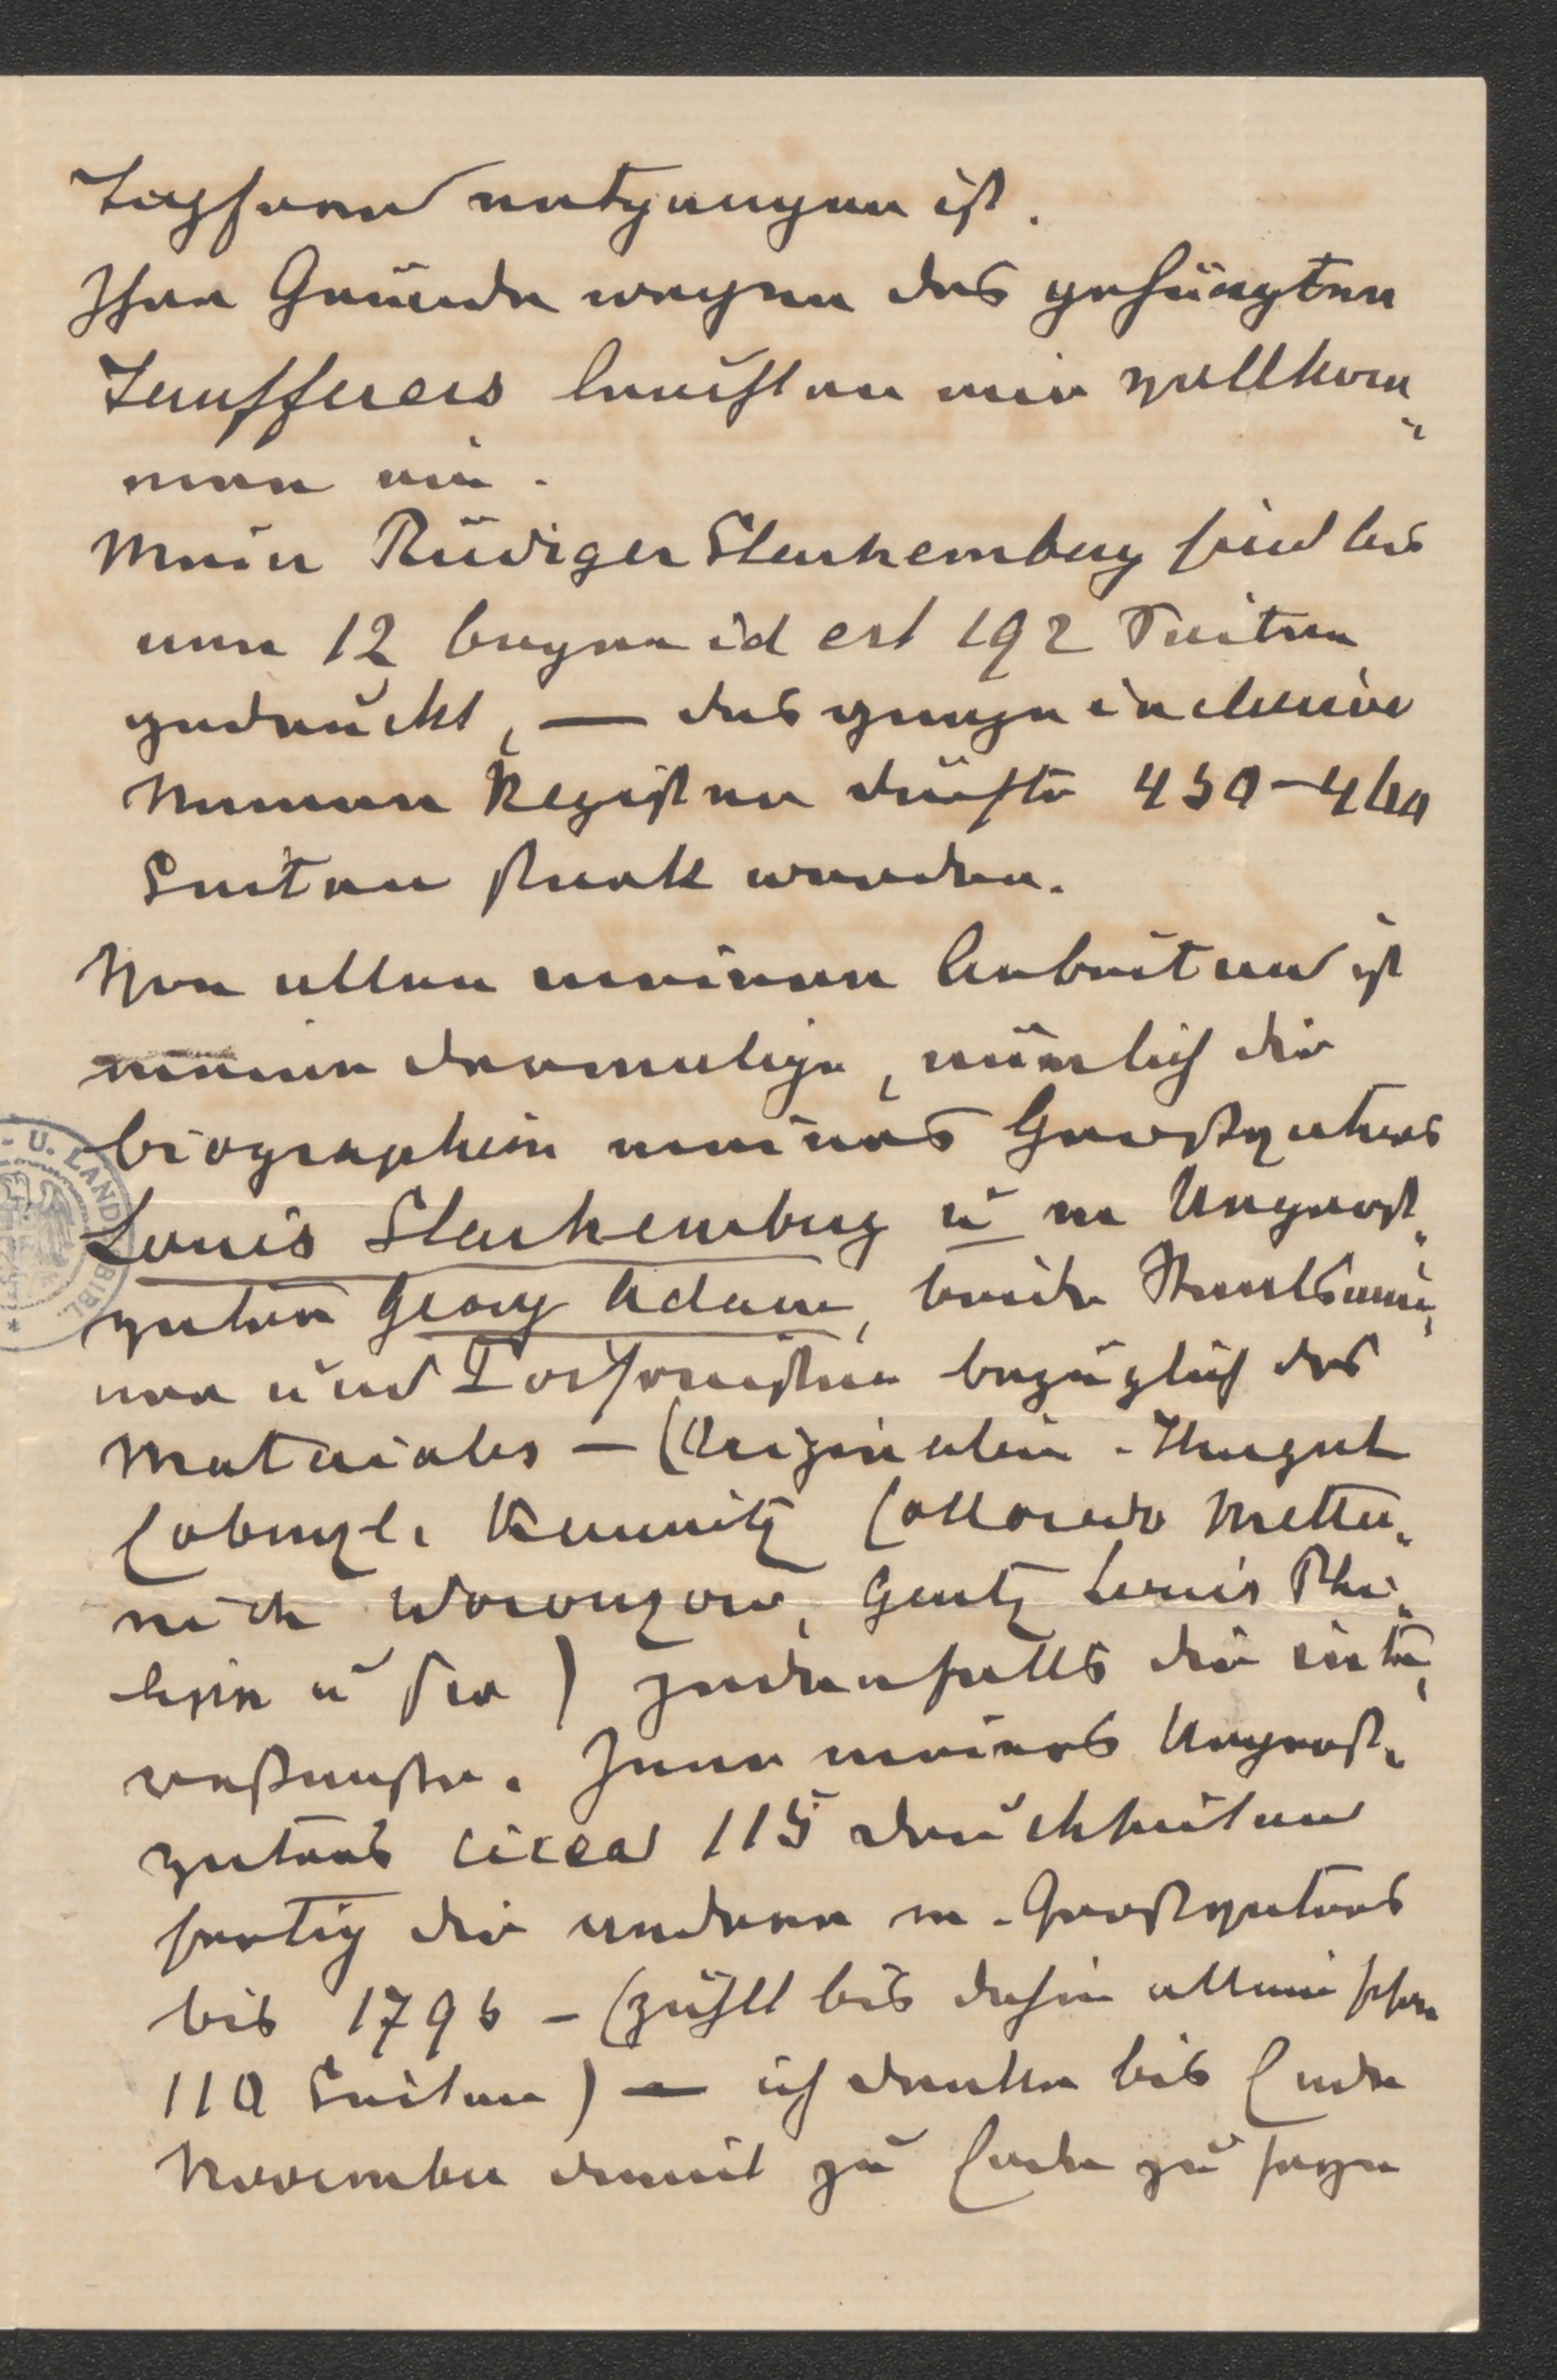 entgangen ist.
Ihre Gründe wegen des gehängten
leuchten mir vollkom„
men ein.
Mein Rüdiger Starhemberg sind bis
nun 12 bogen id est 192 Seiten
gedruckt, — das ganze inclusive
Namen Register dürfte 450–460
Seiten stark werden.
Von allen meinen Arbeiten ist
meine dermalige, nämlich die
biographien meines Großvaters
Louis Starhemberg u m Urgroß„
vaters Georg Adam, beide Staatsmän„
ner und bezüglich des
Materiales – (Originalien - Thugut
Cobenzl, Kaunitz Colloredo Metter„
nich Woronzow, Gentz Louis Phi„
lipp u ) jedenfalls die inte„
ressanteste. Jene meines Urgroß„
vaters circa 115 druckseiten
fertig die andere m. Großvaters
bis 1796 – (zählt bis dahin allein schon
110 Seiten) — ich denke bis Ende
November damit zu Ende zu seyn
- U. LAND
BIBL. *